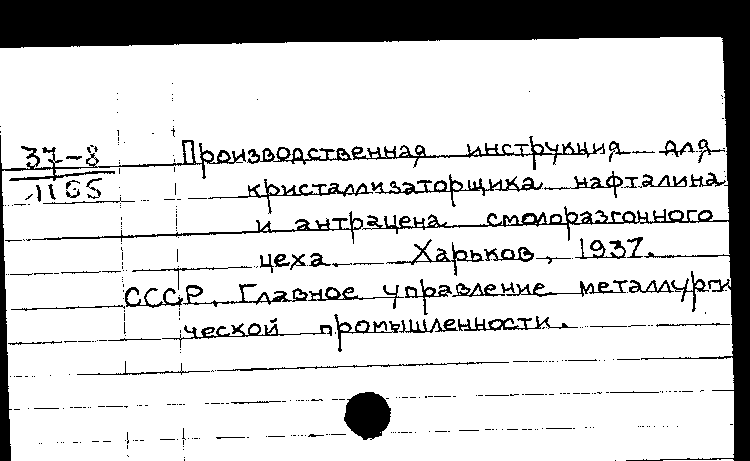 37-8
1165
Производственная инструкция для
кристаллизаторщика нафталина
и антрацена смолоразгонного
цеха. Харьков, 1937.
СССР. Главное управление металлурги
ческой промышленности.